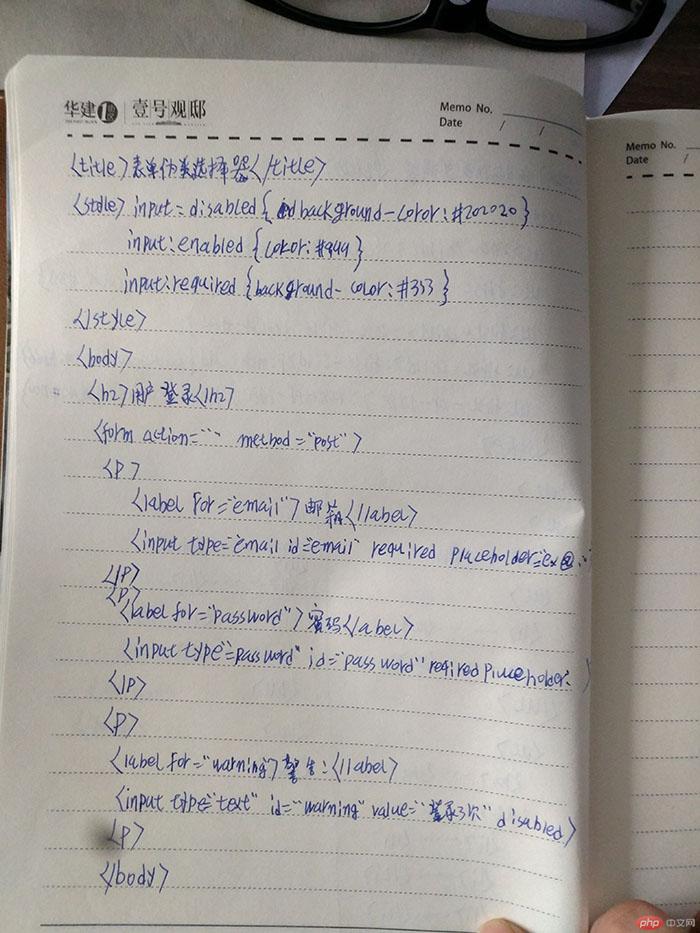 华建 1 壹号观邸
Memo No.
Date / /
Memo No.
Date /
<title>表单伪类选择器</title>
<stdle> input=disabled{ background-color:#202020}
input:enabled {cokor:#999}
input:required {background-color:#333}
</style>
<body>
<h2>用户登录</h2>
<form action="" method="post">
<P>
<label for="email">邮箱</label>
<input type="email id="email" required placeholder="ex@..
</P>
<P>
<label for="password">密码</label>
<input type"=password" id="password" reqired placeholder.
</P>
<P>
<label for="warning">警告:</label>
<input type="text" id="warning" value="登录3次" disabled>
<P>
</body>
php 中文网